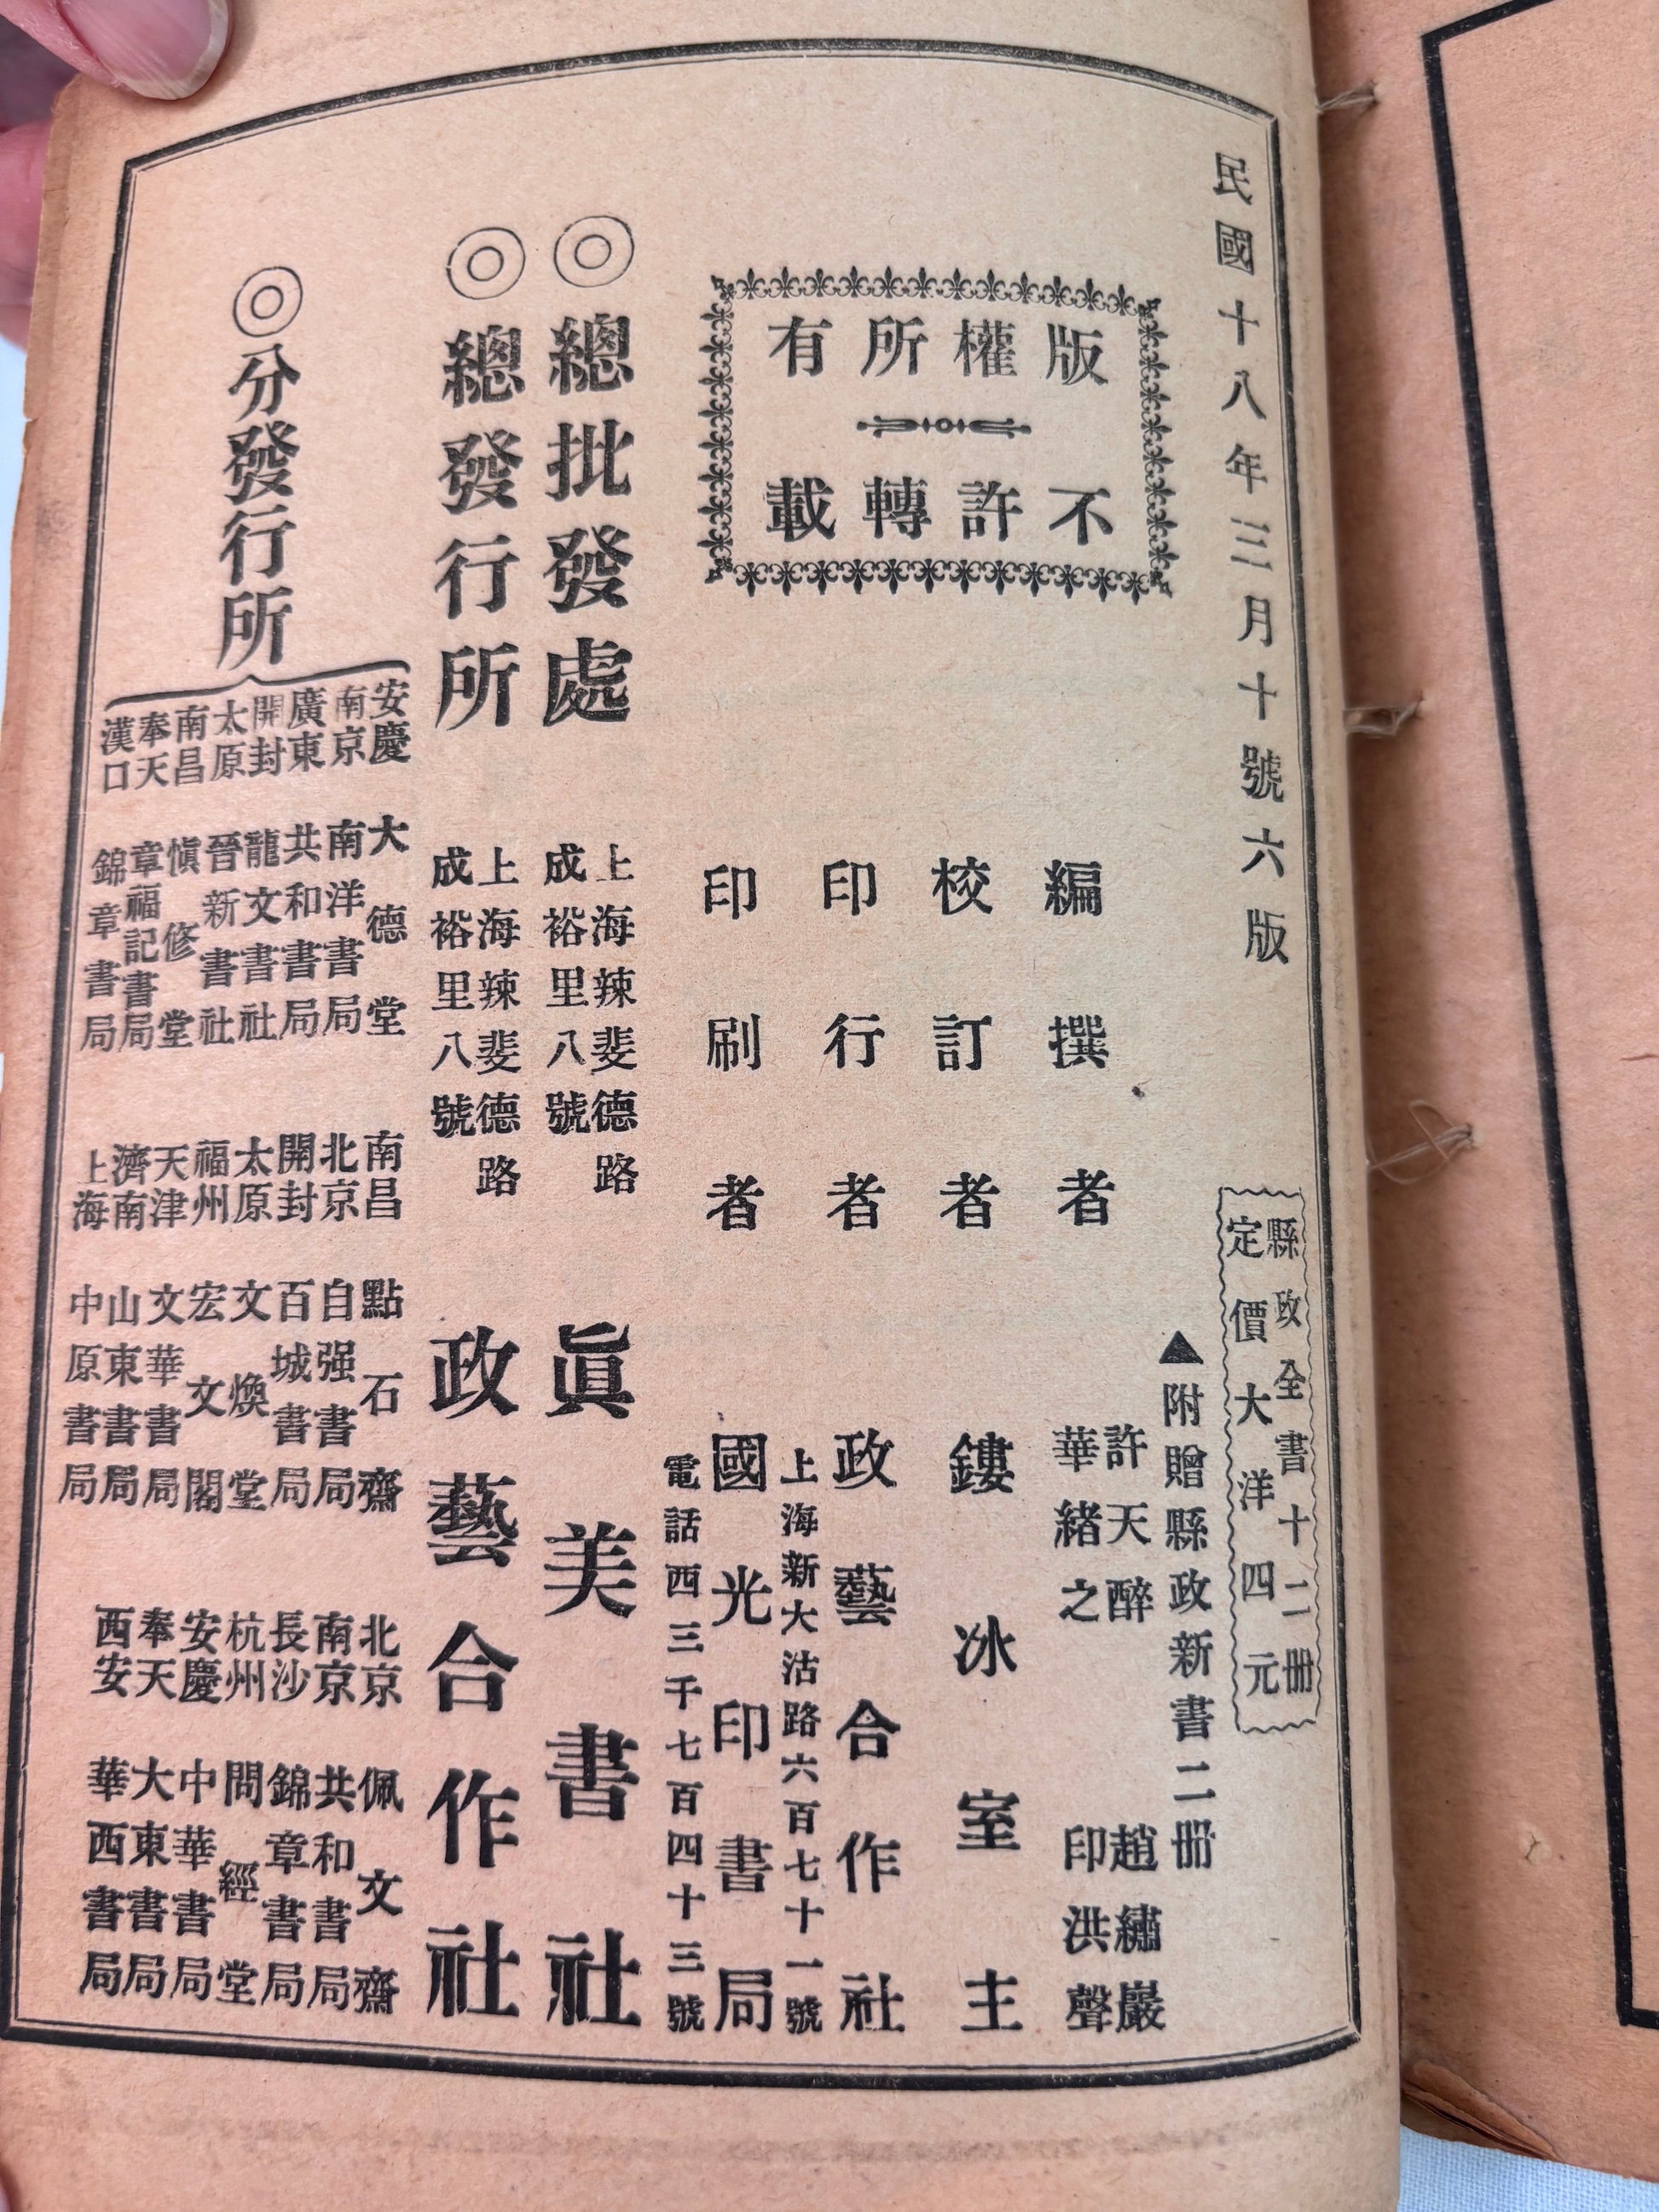 民國十八年三月十號六版
縣政全書十二冊
定價大洋四元
▲附贈縣政新書二冊
版權所有
不許轉載
編撰者
許天醉
華緒之
趙繡巖
印洪聲
校訂者
鏤冰室主
印行者
政藝合作社
上海新大沽路六百七十一號
印刷者
國光印書局
電話西三千七百四十三號
◎總批發處
上海辣斐德路
成裕里八號
眞美書社
◎總發行所
上海辣斐德路
成裕里八號
政藝合作社
◎分發行所
安慶 大德堂
南京 南洋書局
廣東 共和書局
開封 龍文書社
太原 晉新書社
南昌 愼修堂
奉天 章福記書局
漢口 錦章書局
南昌 點石齋
北京 自强書局
開封 百城書局
太原 文煥堂
福州 宏文閣
天津 文華書局
濟南 山東書局
上海 中原書局
北京 佩文齋
南京 共和書局
長沙 錦章書局
杭州 問經堂
安慶 中華書局
奉天 大東書局
西安 華西書局